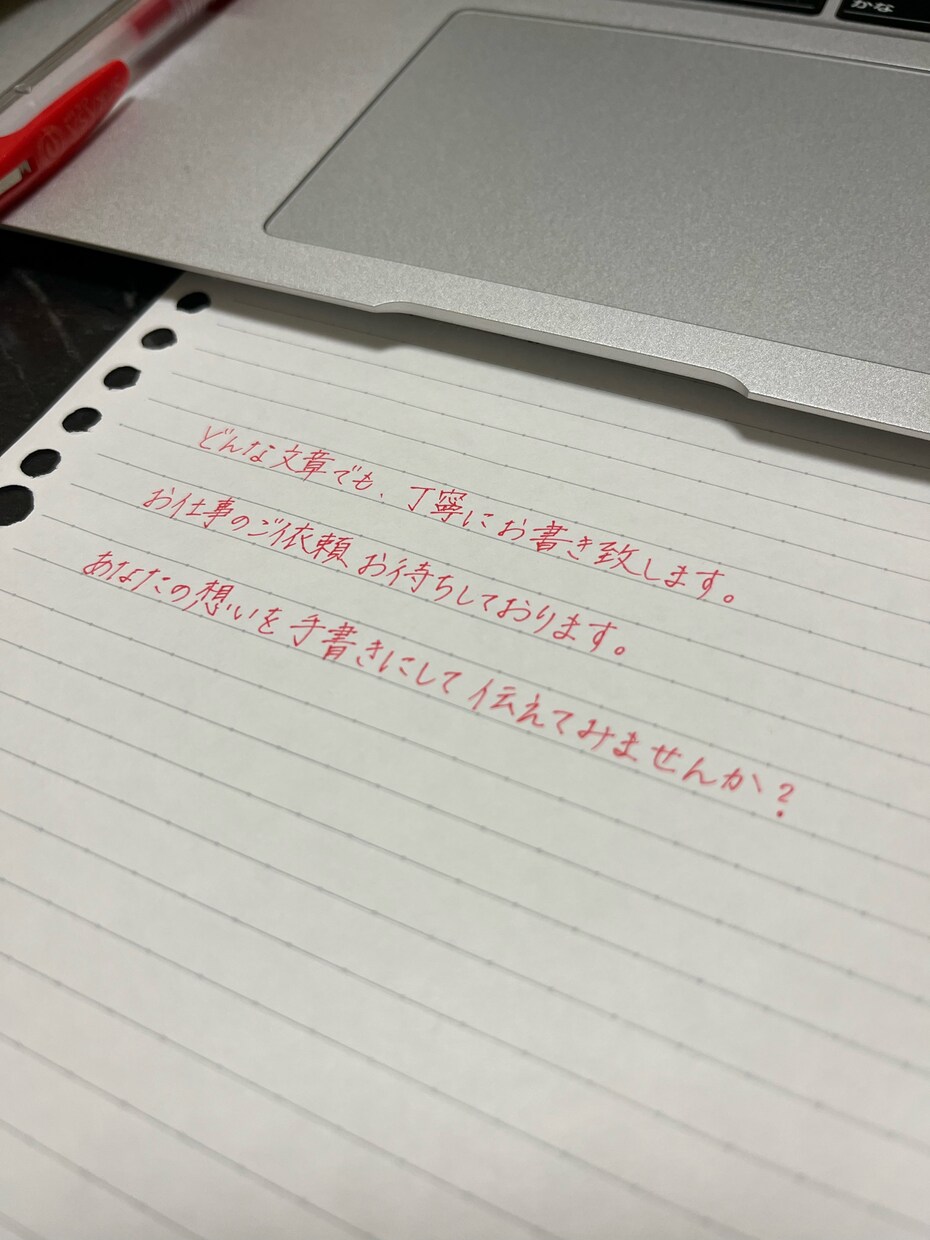 かな
どんな文章でも、丁寧にお書き致します。
お仕事のご依頼お待ちしております。
あなたの想いを手書きにして伝えてみませんか?